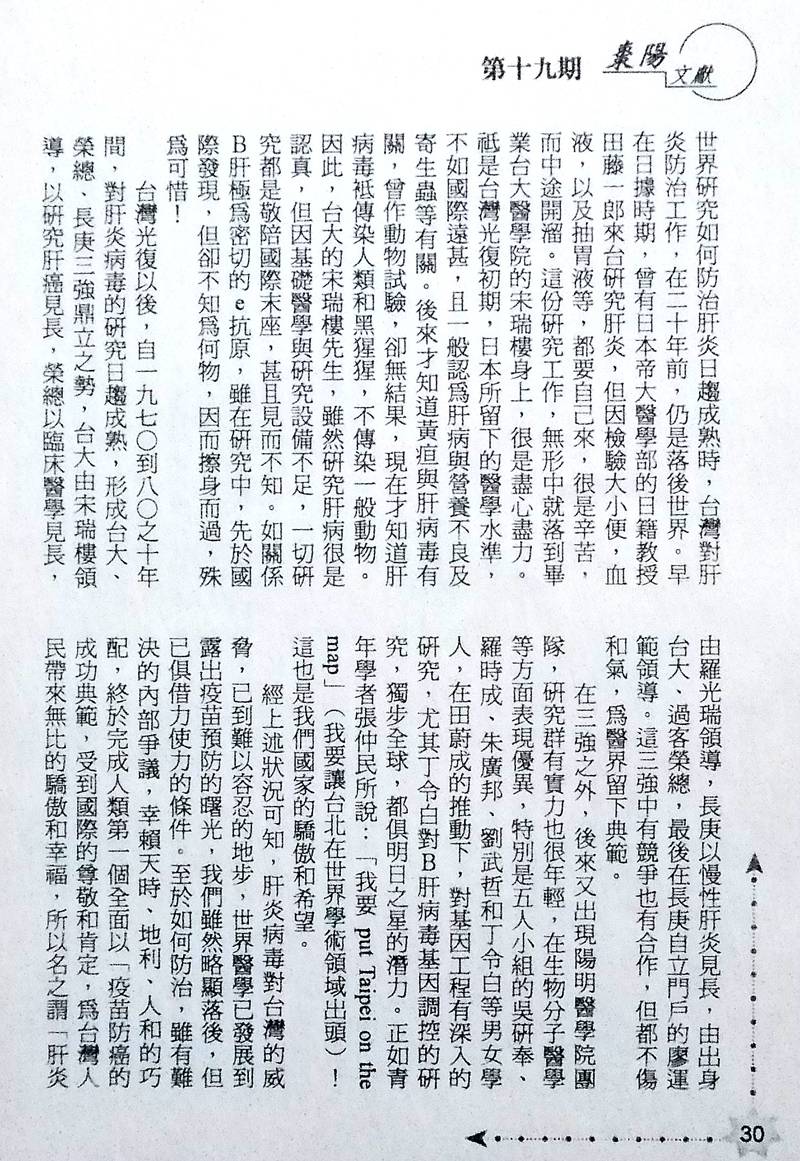 棗陽
文獻
第十九期
世界研究如何防治肝炎日趨成熟時，台灣對肝
炎防治工作，在二十年前，仍是落後世界。早
在日據時期，曾有日本帝大醫學部的日籍教授
田藤一郎來台研究肝炎，但因檢驗大小便，血
液，以及抽胃液等，都要自己來，很是辛苦，
而中途開溜。這份研究工作，無形中就落到畢
業台大醫學院的宋瑞樓身上，很是盡心盡力。
祗是台灣光復初期，日本所留下的醫學水準，
不如國際遠甚，且一般認爲肝病與營養不良及
寄生蟲等有關。後來才知道黃疸與肝病毒有
關，曾作動物試驗，卻無結果，現在才知道肝
病毒祗傳染人類和黑猩猩，不傳染一般動物。
因此，台大的宋瑞樓先生，雖然研究肝病很是
認真，但因基礎醫學與研究設備不足，一切研
究都是敬陪國際末座，甚且見而不知。如關係
B肝極爲密切的e抗原，雖在研究中，先於國
際發現，但卻不知爲何物，因而擦身而過，殊
爲可惜！
台灣光復以後，自一九七〇到八〇之十年
間，對肝炎病毒的研究日趨成熟，形成台大、
榮總、長庚三強鼎立之勢，台大由宋瑞樓領
導，以研究肝癌見長，榮總以臨床醫學見長，
由羅光瑞領導，長庚以慢性肝炎見長，由出身
台大、過客榮總，最後在長庚自立門戶的廖運
範領導。這三強中有競爭也有合作，但都不傷
和氣，爲醫界留下典範。
在三強之外，後來又出現陽明醫學院團
隊，研究群有實力也很年輕，在生物分子醫學
等方面表現優異，特別是五人小組的吳研奉、
羅時成、朱廣邦、劉武哲和丁令白等男女學
人，在田蔚成的推動下，對基因工程有深入的
研究，尤其丁令白對B肝病毒基因調控的研
究，獨步全球，都俱明日之星的潛力。正如青
年學者張仲民所說：「我要 put Taipei on the
map」（我要讓台北在世界學術領域出頭）！
這也是我們國家的驕傲和希望。
經上述狀況可知，肝炎病毒對台灣的威
脅，已到難以容忍的地步，世界醫學已發展到
露出疫苗預防的曙光，我們雖然略顯落後，但
已俱借力使力的條件。至於如何防治，雖有難
決的內部爭議，幸賴天時、地利、人和的巧
配，終於完成人類第一個全面以「疫苗防癌的
成功典範，受到國際的尊敬和肯定，爲台灣人
民帶來無比的驕傲和幸福，所以名之謂「肝炎
30